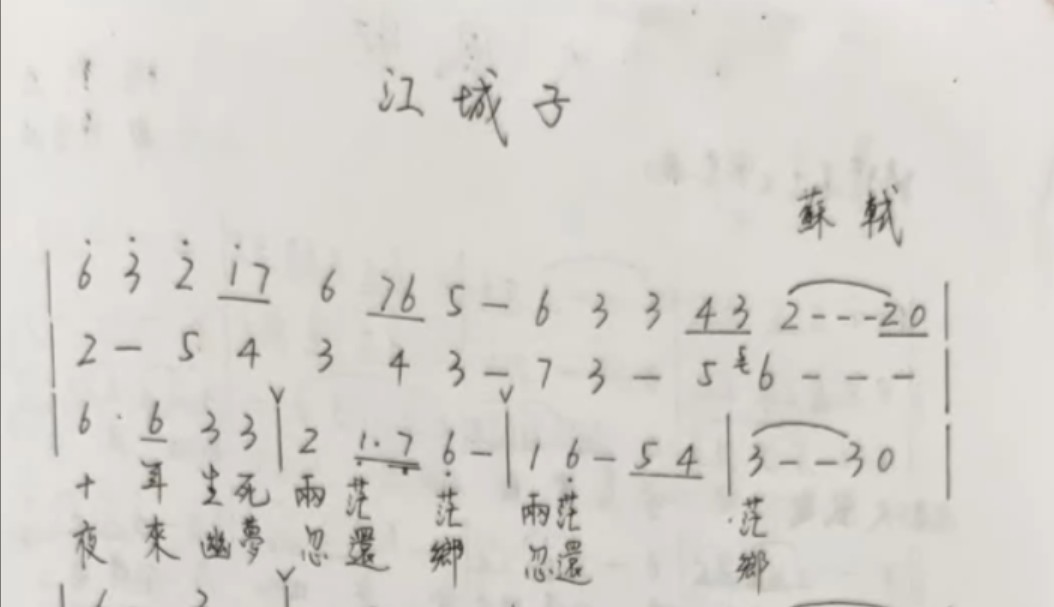 江城子
蘇軾
| 6̇ 3̇ 2̇ 1̇7 6 76 5 – 6 3 3 43 2 - - - 20 |
| 2 – 5 4 3 4 3 – 7 3 – 5 6 – – – |
| 6 · 6 3 3 | 2 1·7 6 – | 1 6 – 54 | 3 – – 30 |
十年生死 兩茫 茫 兩茫 茫
夜來幽夢 忽還 鄉 忽還 鄉